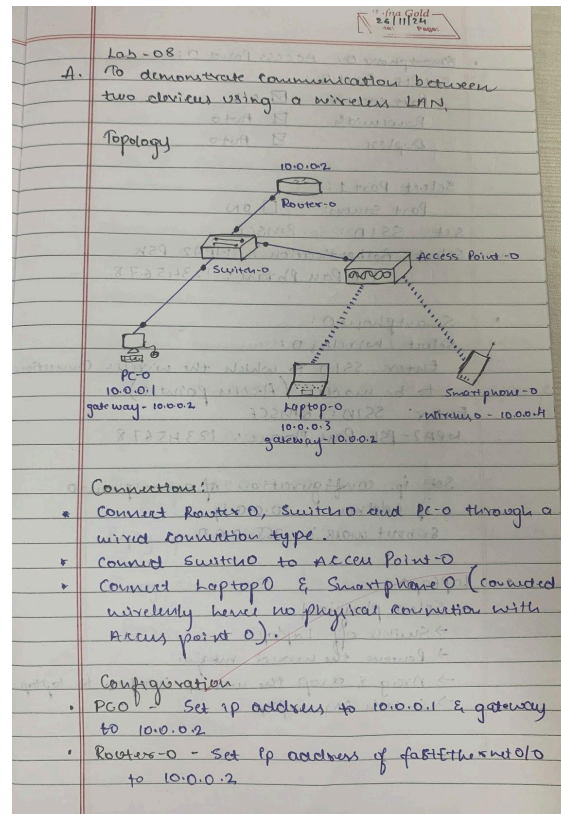 26/11/24
Page:
Lab-08:
A. To demonstrate communication between
two devices using a wireless LAN.
Topology
10.0.0.2
Router-0
Switch-0
Access Point-0
PC-0
10.0.0.1
gateway- 10.0.0.2
Laptop-0
10.0.0.3
gateway- 10.0.0.2
Smartphone-0
wireless0 - 10.0.0.4
Connections:
* Connect Router0, Switch0 and PC-0 through a
wired connection type.
* Connect Switch0 to Access Point-0
* Connect Laptop0 & Smartphone0 (connected
wirelessly hence no physical connection with
Access point 0).
Configuration
• PC0 - Set ip address to 10.0.0.1 & gateway
to 10.0.0.2
• Router-0 - Set ip address of fastEthernet0/0
to 10.0.0.2